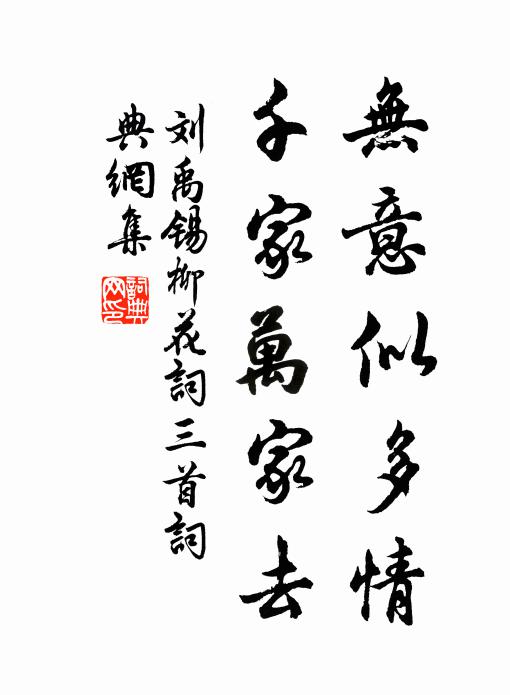 無意似多情
千家萬家去
刘禹锡柳花詞三首詞
典網集
詞典
网印